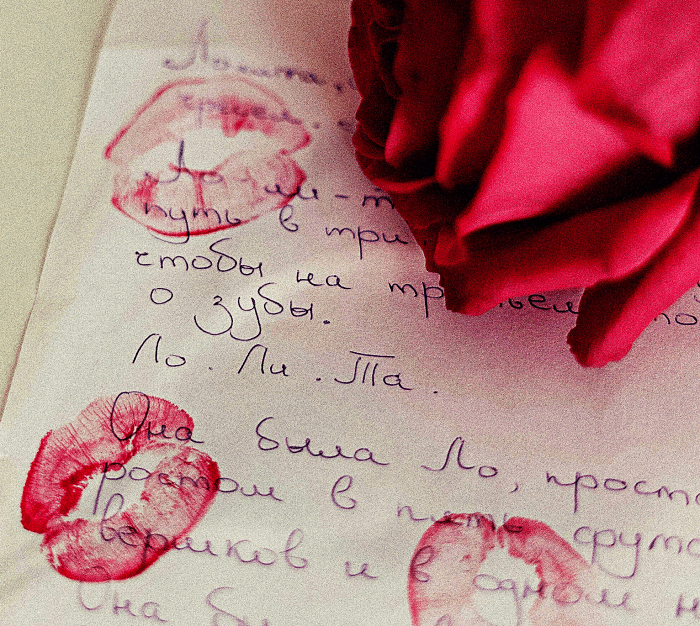 Лолита,
грех
Ло-ли-т
путь в три
чтобы на тр ьем
о зубы.
Ло. Ли. Та.
Она была Ло, прост
ростом в пять фута
вершков и в одном н
Она бы